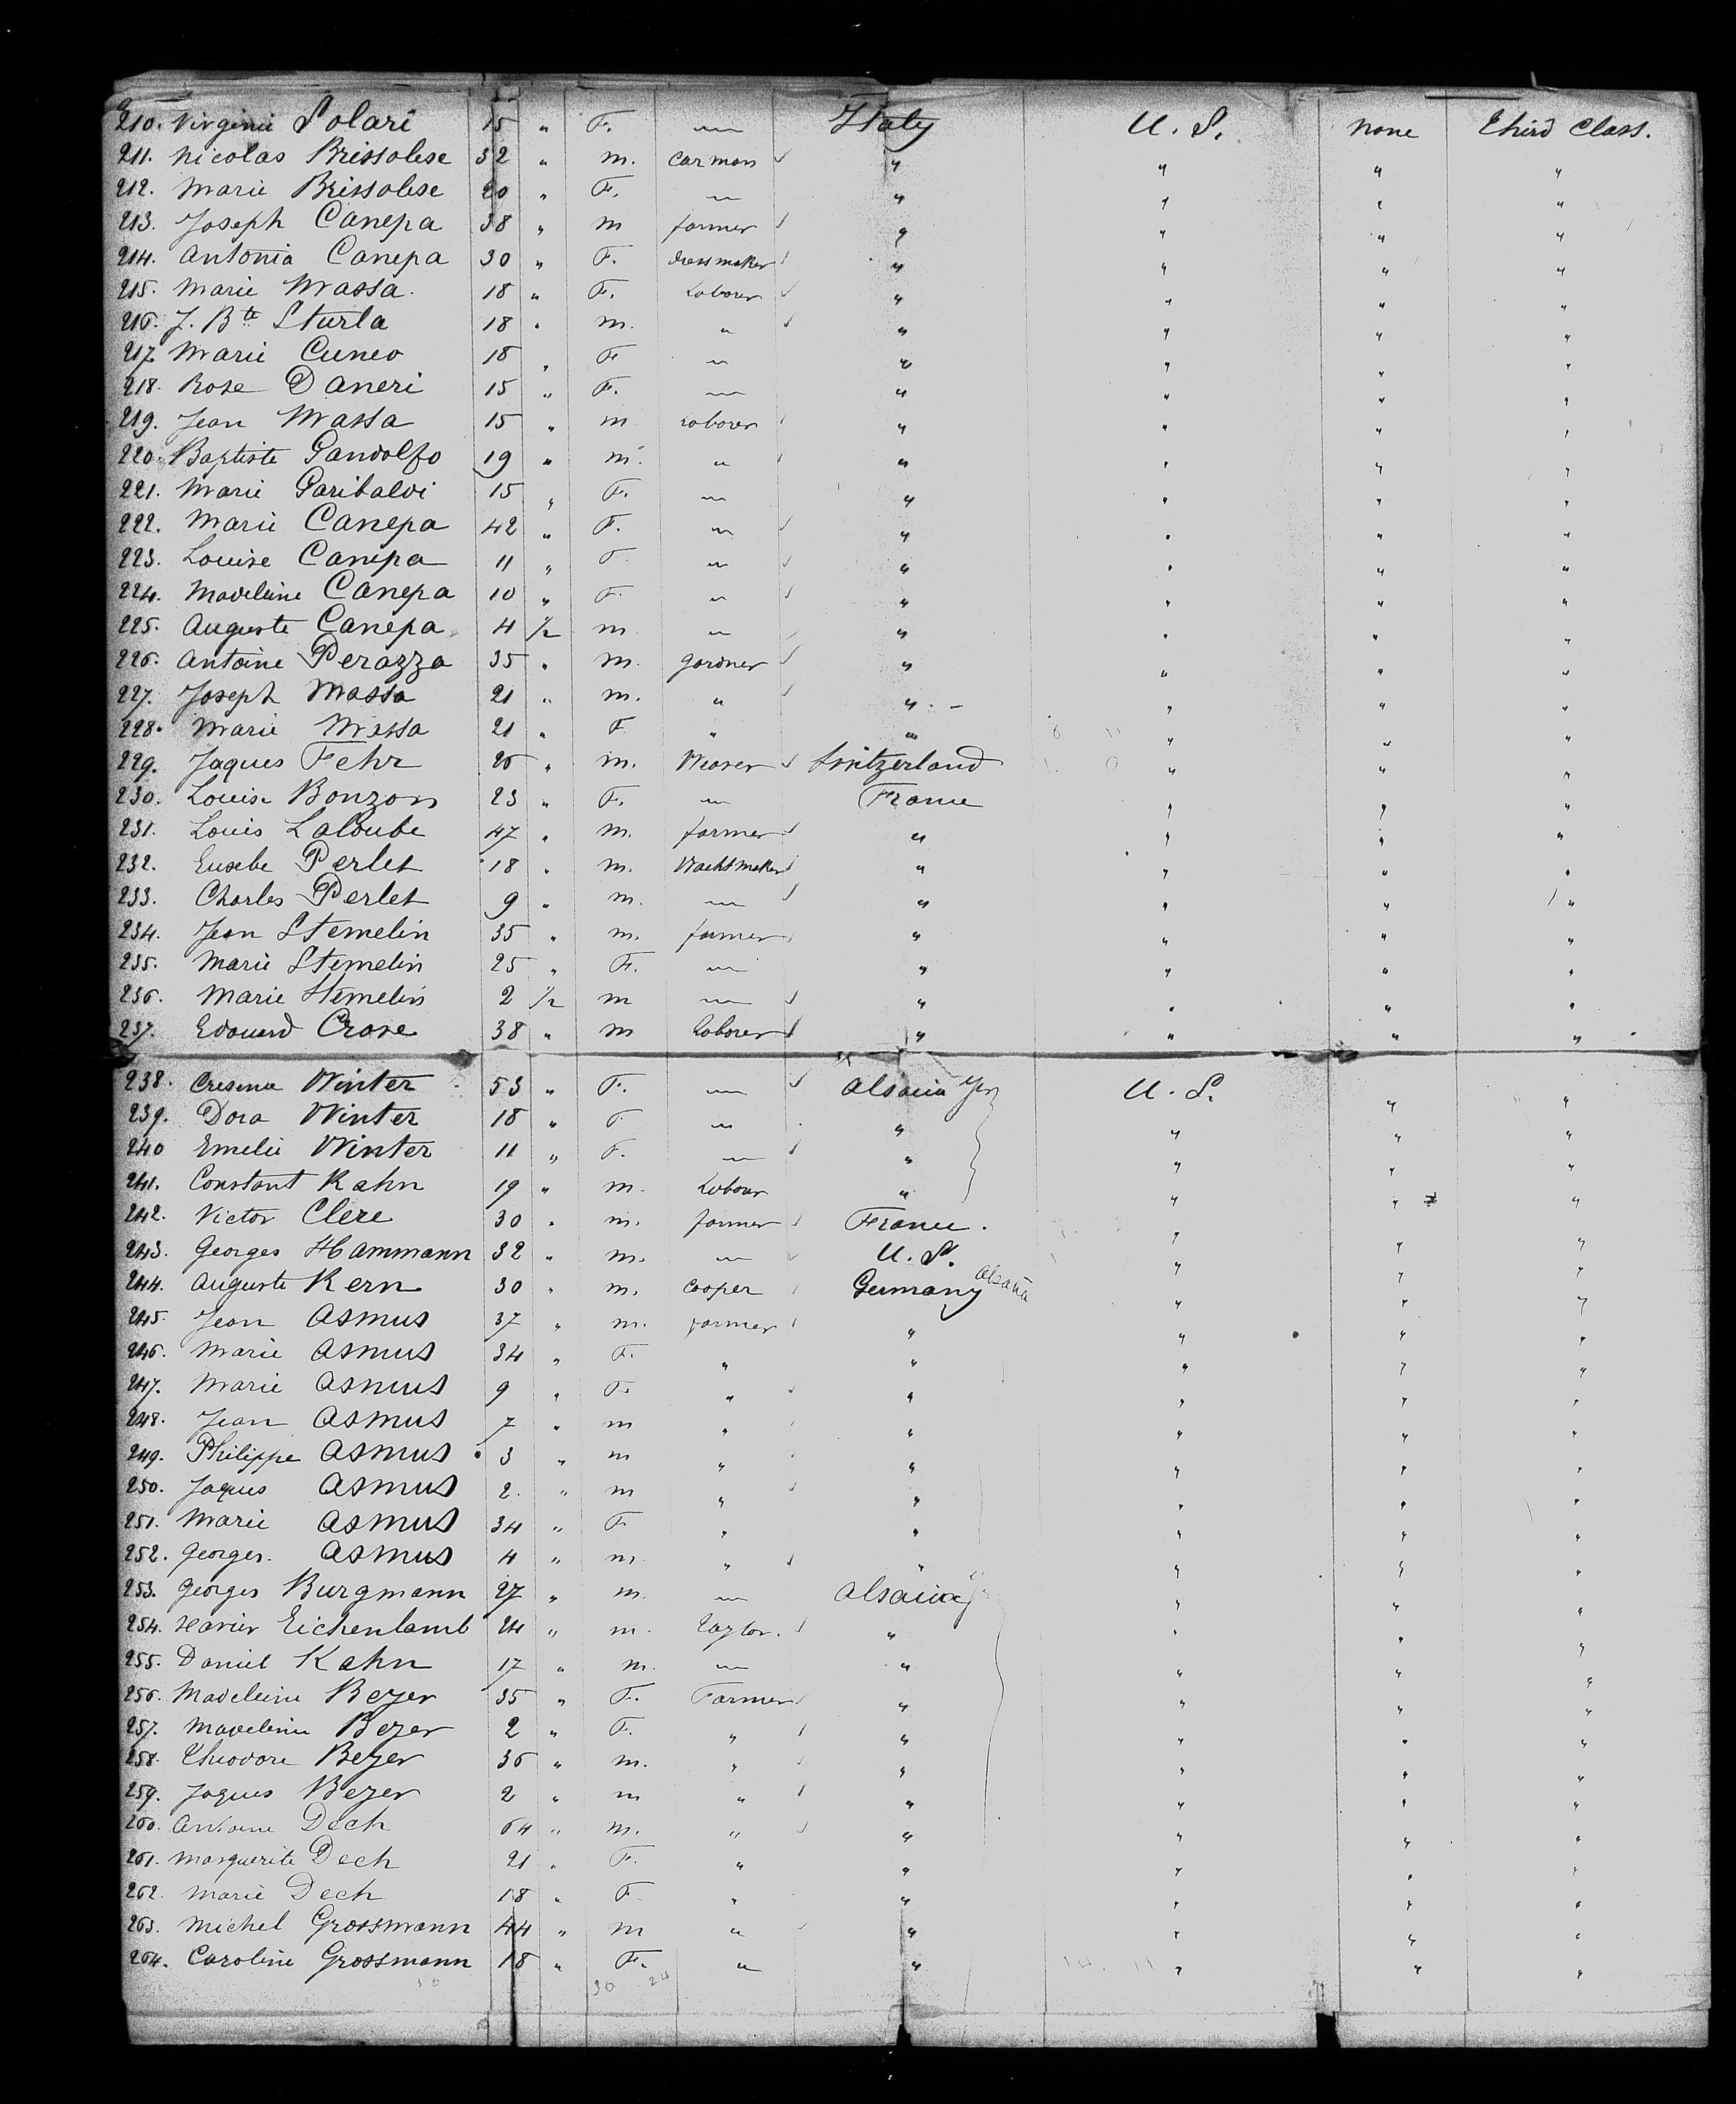 210. Virginie Solari 15 " F. — Italy U. S. none third Class.
211. Nicolas Brissolese 32 " m. carman " " " "
212. Marie Brissolese 20 " F. — " " " "
213. Joseph Canepa 38 " m farmer " " " "
214. Antonia Canepa 30 " F. dressmaker " " " "
215. Marie Massa. 18 " F. Laborer " " " "
216. J. Bte Sturla 18 " m. " " " " "
217. Marie Cuneo 18 " F — " " " "
218. Rose Daneri 15 " F. — " " " "
219. Jean Massa 15 " m Laborer " " " "
220. Baptiste Gandolfo 19 " m. " " " " "
221. Marie Garibaldi 15 " F. — " " " "
222. Marie Canepa 42 " F. — " " " "
223. Louise Canepa 11 " F. — " " " "
224. Madeleine Canepa 10 " F. — " " " "
225. Auguste Canepa 4 1/2 m — " " " "
226. Antoine Perazzo 35 " m. gardner " " " "
227. Joseph Massa 21 " m. " " " " "
228. Marie Massa 21 " F " " " " "
229. Jaques Fehr 26 " m. Weaver Switzerland " " "
230. Louise Bonzon 23 " F. — France " " "
231. Louis Laloube 47 " m. farmer " " " "
232. Eusebe Perlet 18 " m. Wachtmaker " " " "
233. Charles Perlet 9 " m. — " " " "
234. Jean Stemelin 35 " m. farmer " " " "
235. Marie Stemelin 25 " F. — " " " "
236. Marie Stemelin 2 1/2 m — " " " "
237. Edouard 38 " m Laborer " " " "
238. Winter 53 " F. — Alsacia U. S. " "
239. Dora Winter 18 " F — " " " "
240 Emelie Winter 11 " F. — " " " "
241. Constant Kahn 19 " m. Labour " " " "
242. Victor Clere 30 " m. farmer France. " " "
243. Georges Hammann 32 " m. — U. S. " " "
244. Auguste Kern 30 " m. cooper Germany Alsacia " " "
245. Jean Asmus 37 " m. farmer " " " "
246. Marie Asmus 34 " F. " " " " "
247. Marie Asmus 9 " F " " " " "
248. Jean Asmus 7 " m " " " " "
249. Philippe Asmus 3 " m " " " " "
250. Jaques Asmus 2. " m " " " " "
251. Marie Asmus 34 " F " " " " "
252. Georges. Asmus 4 " m. " " " " "
253. Georges Burgmann 27 " m. — Alsacia " " "
254. Xavier Eichenlamb 24 " m. Taylor. " " " "
255. Daniel Kahn 17 " m. — " " " "
256. Madeleine Beyer 35 " F. Farmer " " " "
257. Madeleine Beyer 2 " F. " " " " "
258. Theodore Beyer 36 " m. " " " " "
259. Jaques Beyer 2 " m " " " " "
260. Antoine Dech 64 " m. " " " " "
261. Marguerite Dech 21 " F. " " " " "
262. Marie Dech 18 " F " " " " "
263. Michel Grossmann 44 " m " " " " "
264. Caroline Grossmann 18 " F. " " " " "
30 24